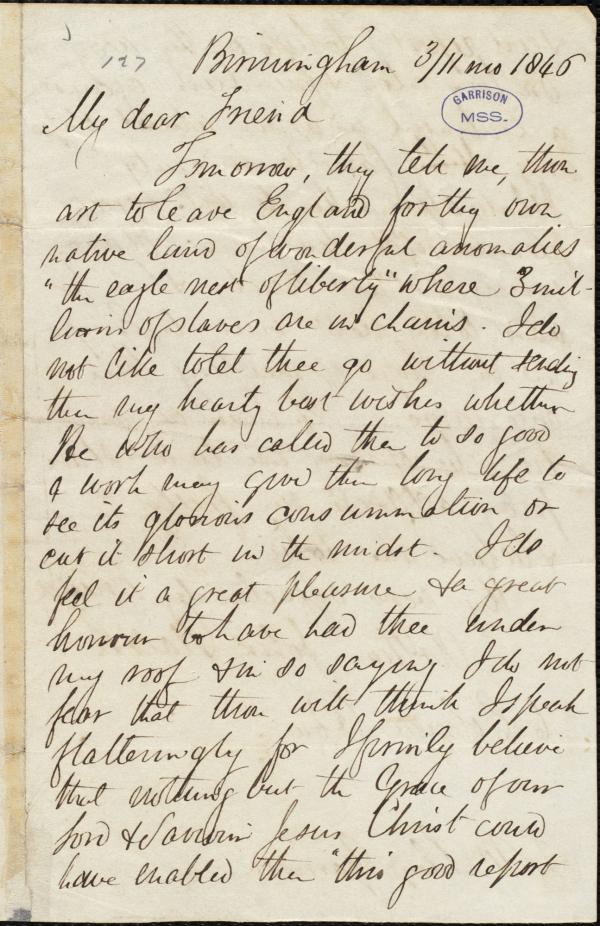 127
Birmingham 3/11 mo 1846
GARRISON
MSS.
My dear Friend
Tomorrow, they tell me, thou
art to leave England for thy own
native land of wonderful anomalies
"the eagle nest of liberty" where 3 mil-
lions of slaves are in chains. I do
not like to let thee go without sending
thee my hearty best wishes whether
He who has called thee to so good
a work may give thee long life to
see its glorious consummation or
cut it short in the midst. I do
feel it a great pleasure & a great
honour to have had thee under
my roof & in so saying I do not
fear that thou wilt think I speak
flatteringly for I firmly believe
that nothing but the Grace of our
Lord & Saviour Jesus Christ could
have enabled thee "this good report